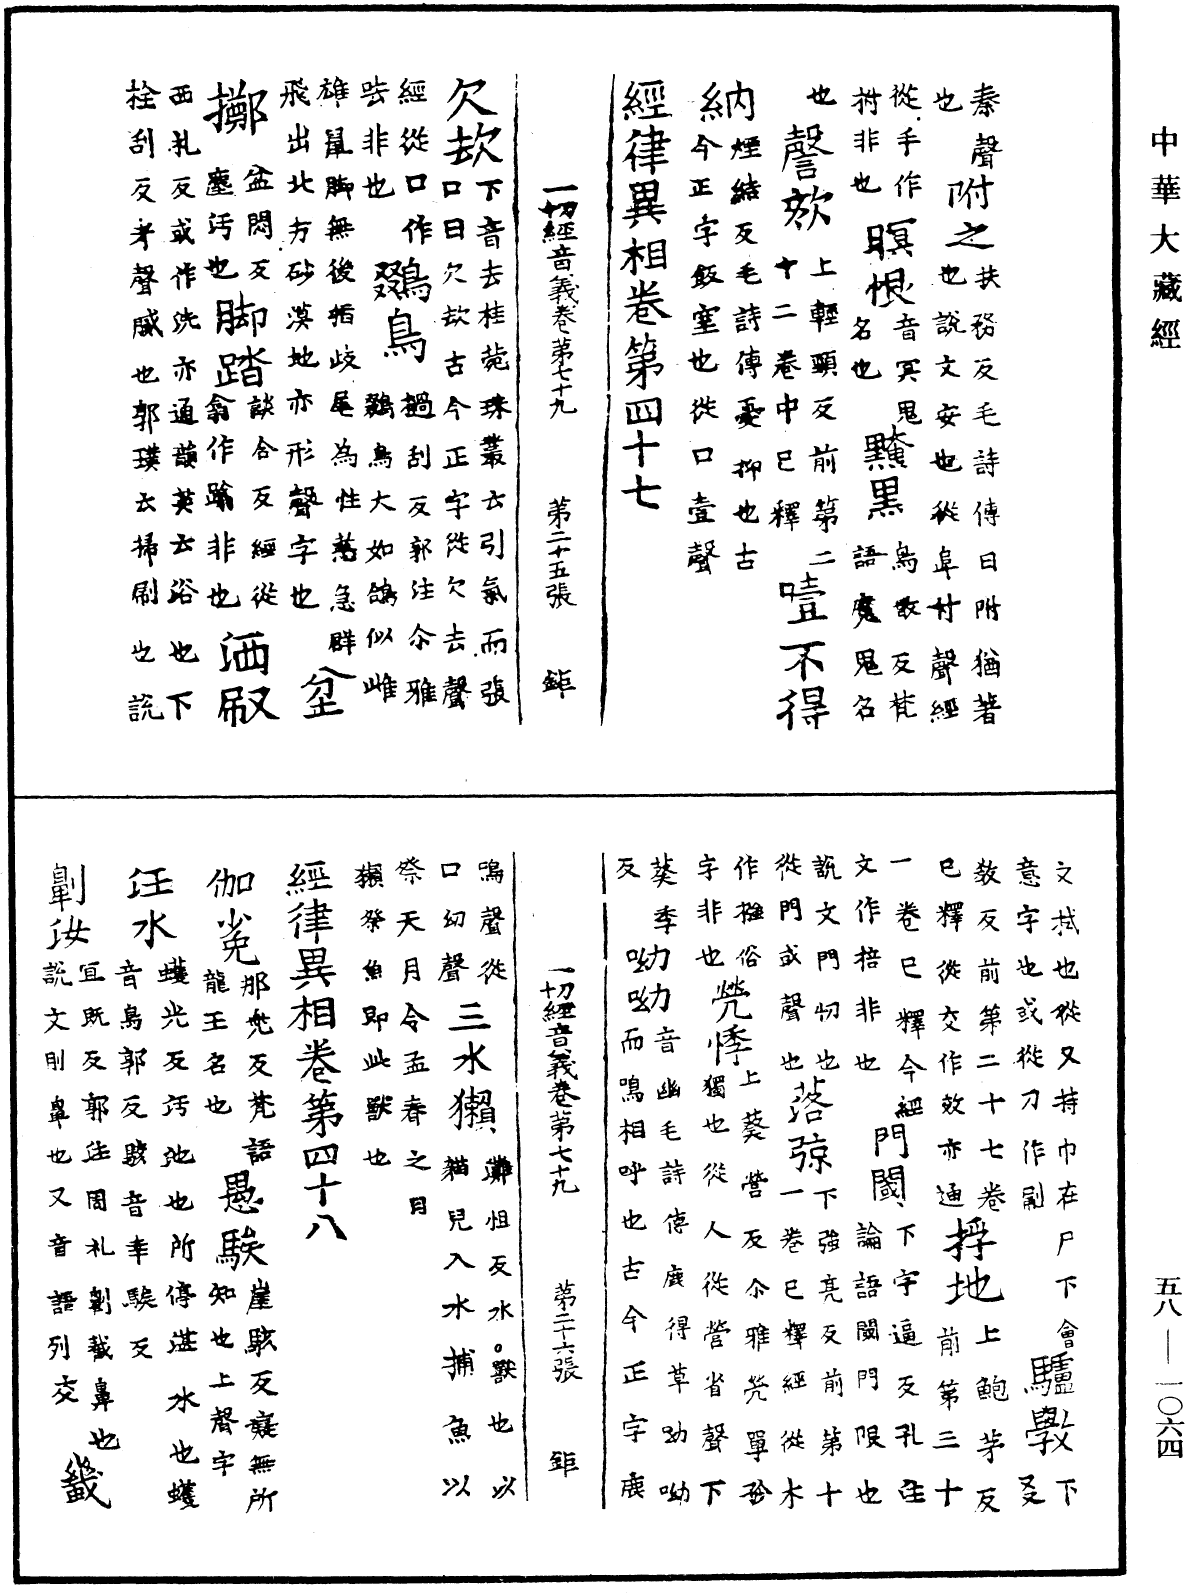 中華大藏經
秦聲附之扶務反毛詩傳曰附猶著
也也說文安也從阜付聲經
從手作瞑恨音冥鬼
拊非也名也黤黑烏敢反梵
語魔鬼名
也謦欬上輕頸反前第二
十二卷中已釋噎不得
煙結反毛詩傳憂抑也古
納今正字飯窒也從口壹聲
經律異相卷第四十七
一切經音義卷第七十九 第二十五張 鉅
欠㰦下音去桂菀珠叢云引氣而張
口曰欠㰦古今正字從欠去聲
經從口作鵽鳥𢵧刮反郭注尒雅
呿非也鵽鳥大如鴿似雌
雄鼠脚無後指歧尾為性憃急群
飛出北方砂漠地亦形聲字也坌
擲盆悶反
塵污也脚踏談合反經從
翕作蹹非也洒刷
西礼反或作洗亦通韻英云浴也下
拴刮反考聲膩也郭璞云掃刷也說
文拭也從又持巾在尸下會驢斆下
意字也或從刀作刷爻
教反前第二十七卷捊地上鮑茅反
已釋從交作效亦通前第三十
一卷已釋今經門閾下字逼反孔注
文作掊非也論語閾門限也
說文門切也落弶下強亮反前第十
從門或聲也一卷已釋經從木
作㩭俗煢悸上葵營反尒雅煢單
字非也獨也從人從營省聲下
葵季呦呦音幽毛詩傳鹿得草呦呦
反而鳴相呼也古今正字鹿
鳴聲從三水獺灘怛反水獸也以
口幼聲猫兒入水捕魚以
祭天月令孟春之月
獺祭魚即此獸也
經律異相卷第四十八
一切經音義卷第七十九 第二十六張 鉅
伽㲋那兠反梵語愚騃崖駭反癡無所
龍王名也知也上聲字
汪水蠖光反污池也所停湛水也蠖
音烏郭反駭音幸騃反
劓汝宜既反郭注周礼劓截鼻也
說文刖鼻也又音語列交𢧵
五八—一〇六四